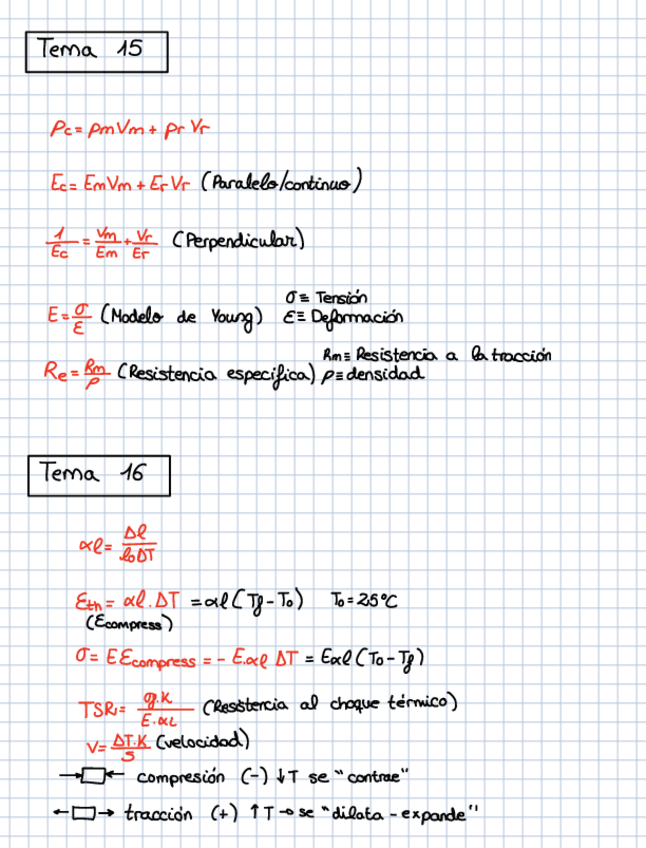 Tema 15
ρc = ρmVm + ρrVr
Ec = EmVm + ErVr (Paralelo/continuo)
1/Ec = Vm/Em + Vr/Er (Perpendicular)
E = σ/ε (Modelo de Young) σ ≡ Tensión
ε ≡ Deformación
Re = Rm/ρ (Resistencia específica) Rm ≡ Resistencia a la tracción
ρ ≡ densidad
Tema 16
αl = Δl/l₀ΔT
Eth = αl . ΔT = αl (Tf - T₀) T₀ = 25°C
(Ecompress)
σ = E Ecompress = - E.αl ΔT = Eαl (T₀ - Tf)
TSR = σf.K/E.αL (Resistencia al choque térmico)
V = ΔT.K/S (velocidad)
→□← compresión (-) ↓T se "contrae"
←□→ tracción (+) ↑T → se "dilata - expande"